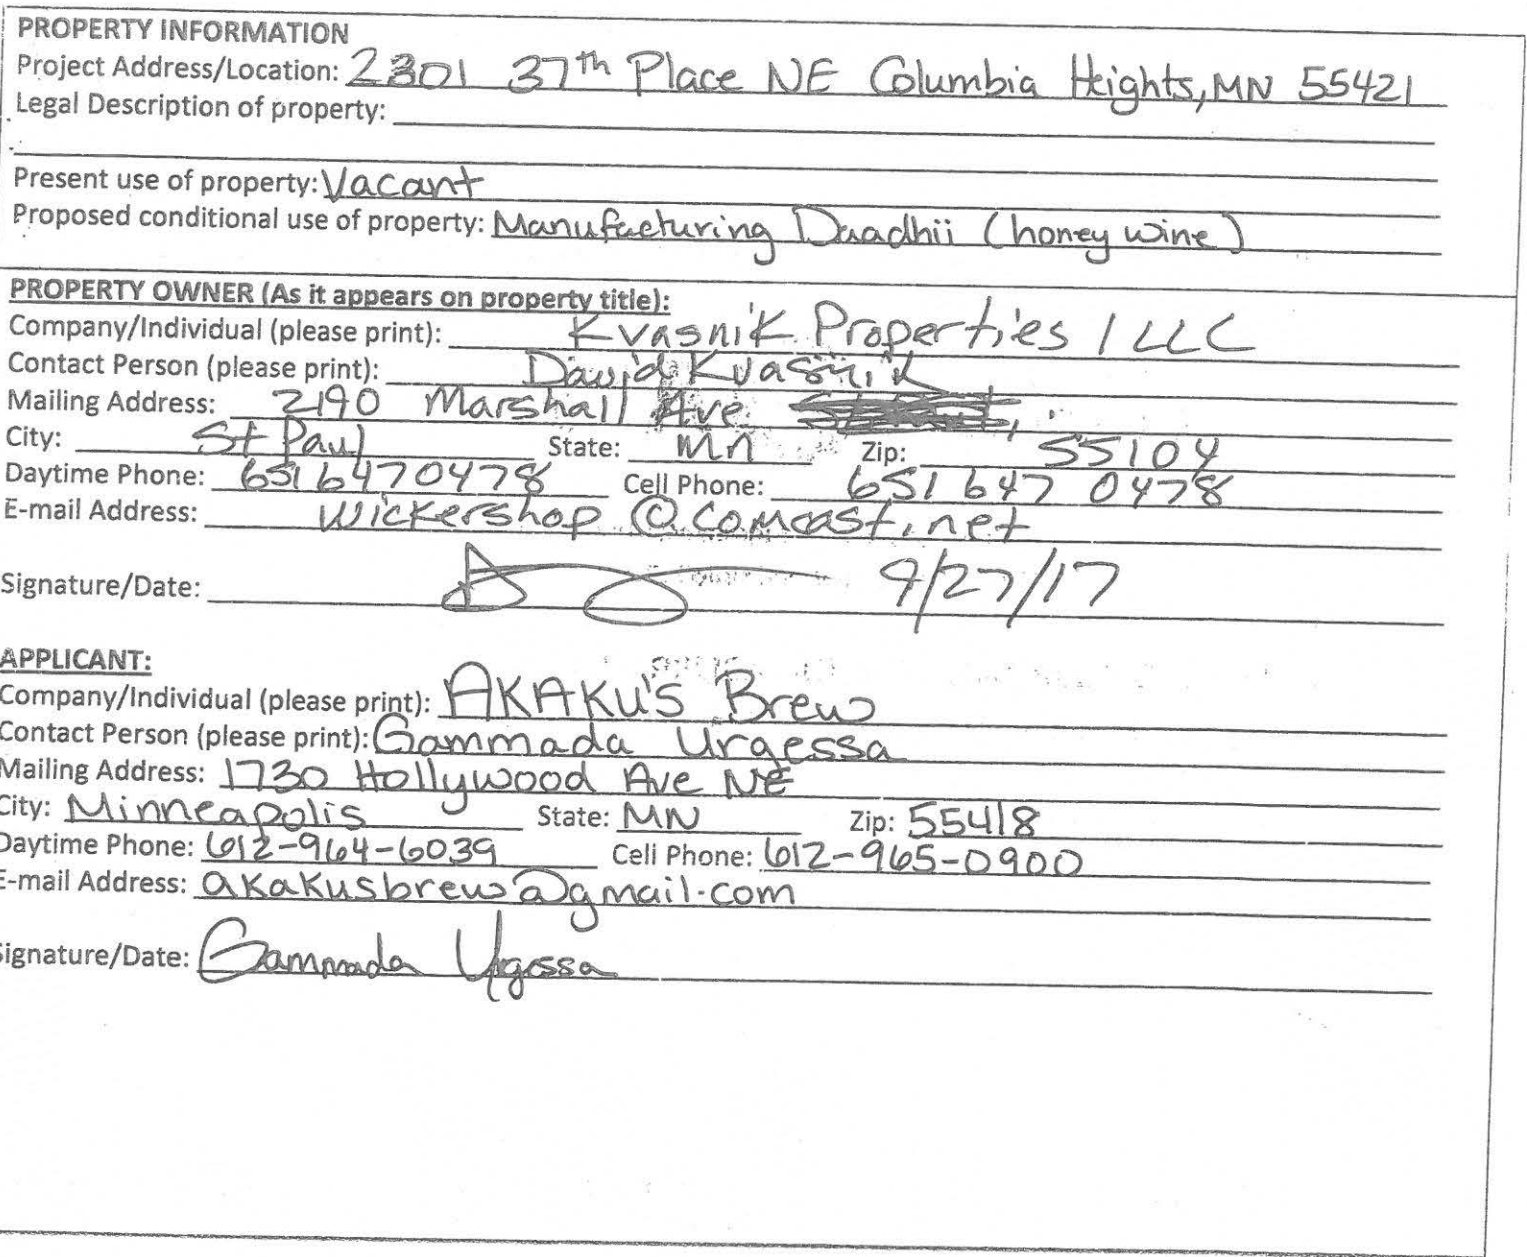 PROPERTY INFORMATION
Project Address/Location: 2301 37th Place NE Columbia Heights, MN 55421
Legal Description of property:
Present use of property: Vacant
Proposed conditional use of property: Manufacturing Daadhii (honey wine)
PROPERTY OWNER (As it appears on property title):
Company/Individual (please print): Kvasnik Properties I LLC
Contact Person (please print): David Kvasnik
Mailing Address: 2190 Marshall Ave
City: St Paul State: Mn Zip: 55104
Daytime Phone: 6516470478 Cell Phone: 651 647 0478
E-mail Address: Wickershop @comcast.net
Signature/Date: 9/27/17
APPLICANT:
Company/Individual (please print): AKAKU'S Brew
Contact Person (please print): Gammada Urgessa
Mailing Address: 1730 Hollywood Ave NE
City: Minneapolis State: MN Zip: 55418
Daytime Phone: 612-964-6039 Cell Phone: 612-965-0900
E-mail Address: akakusbrew@gmail.com
Signature/Date: Gammada Urgessa